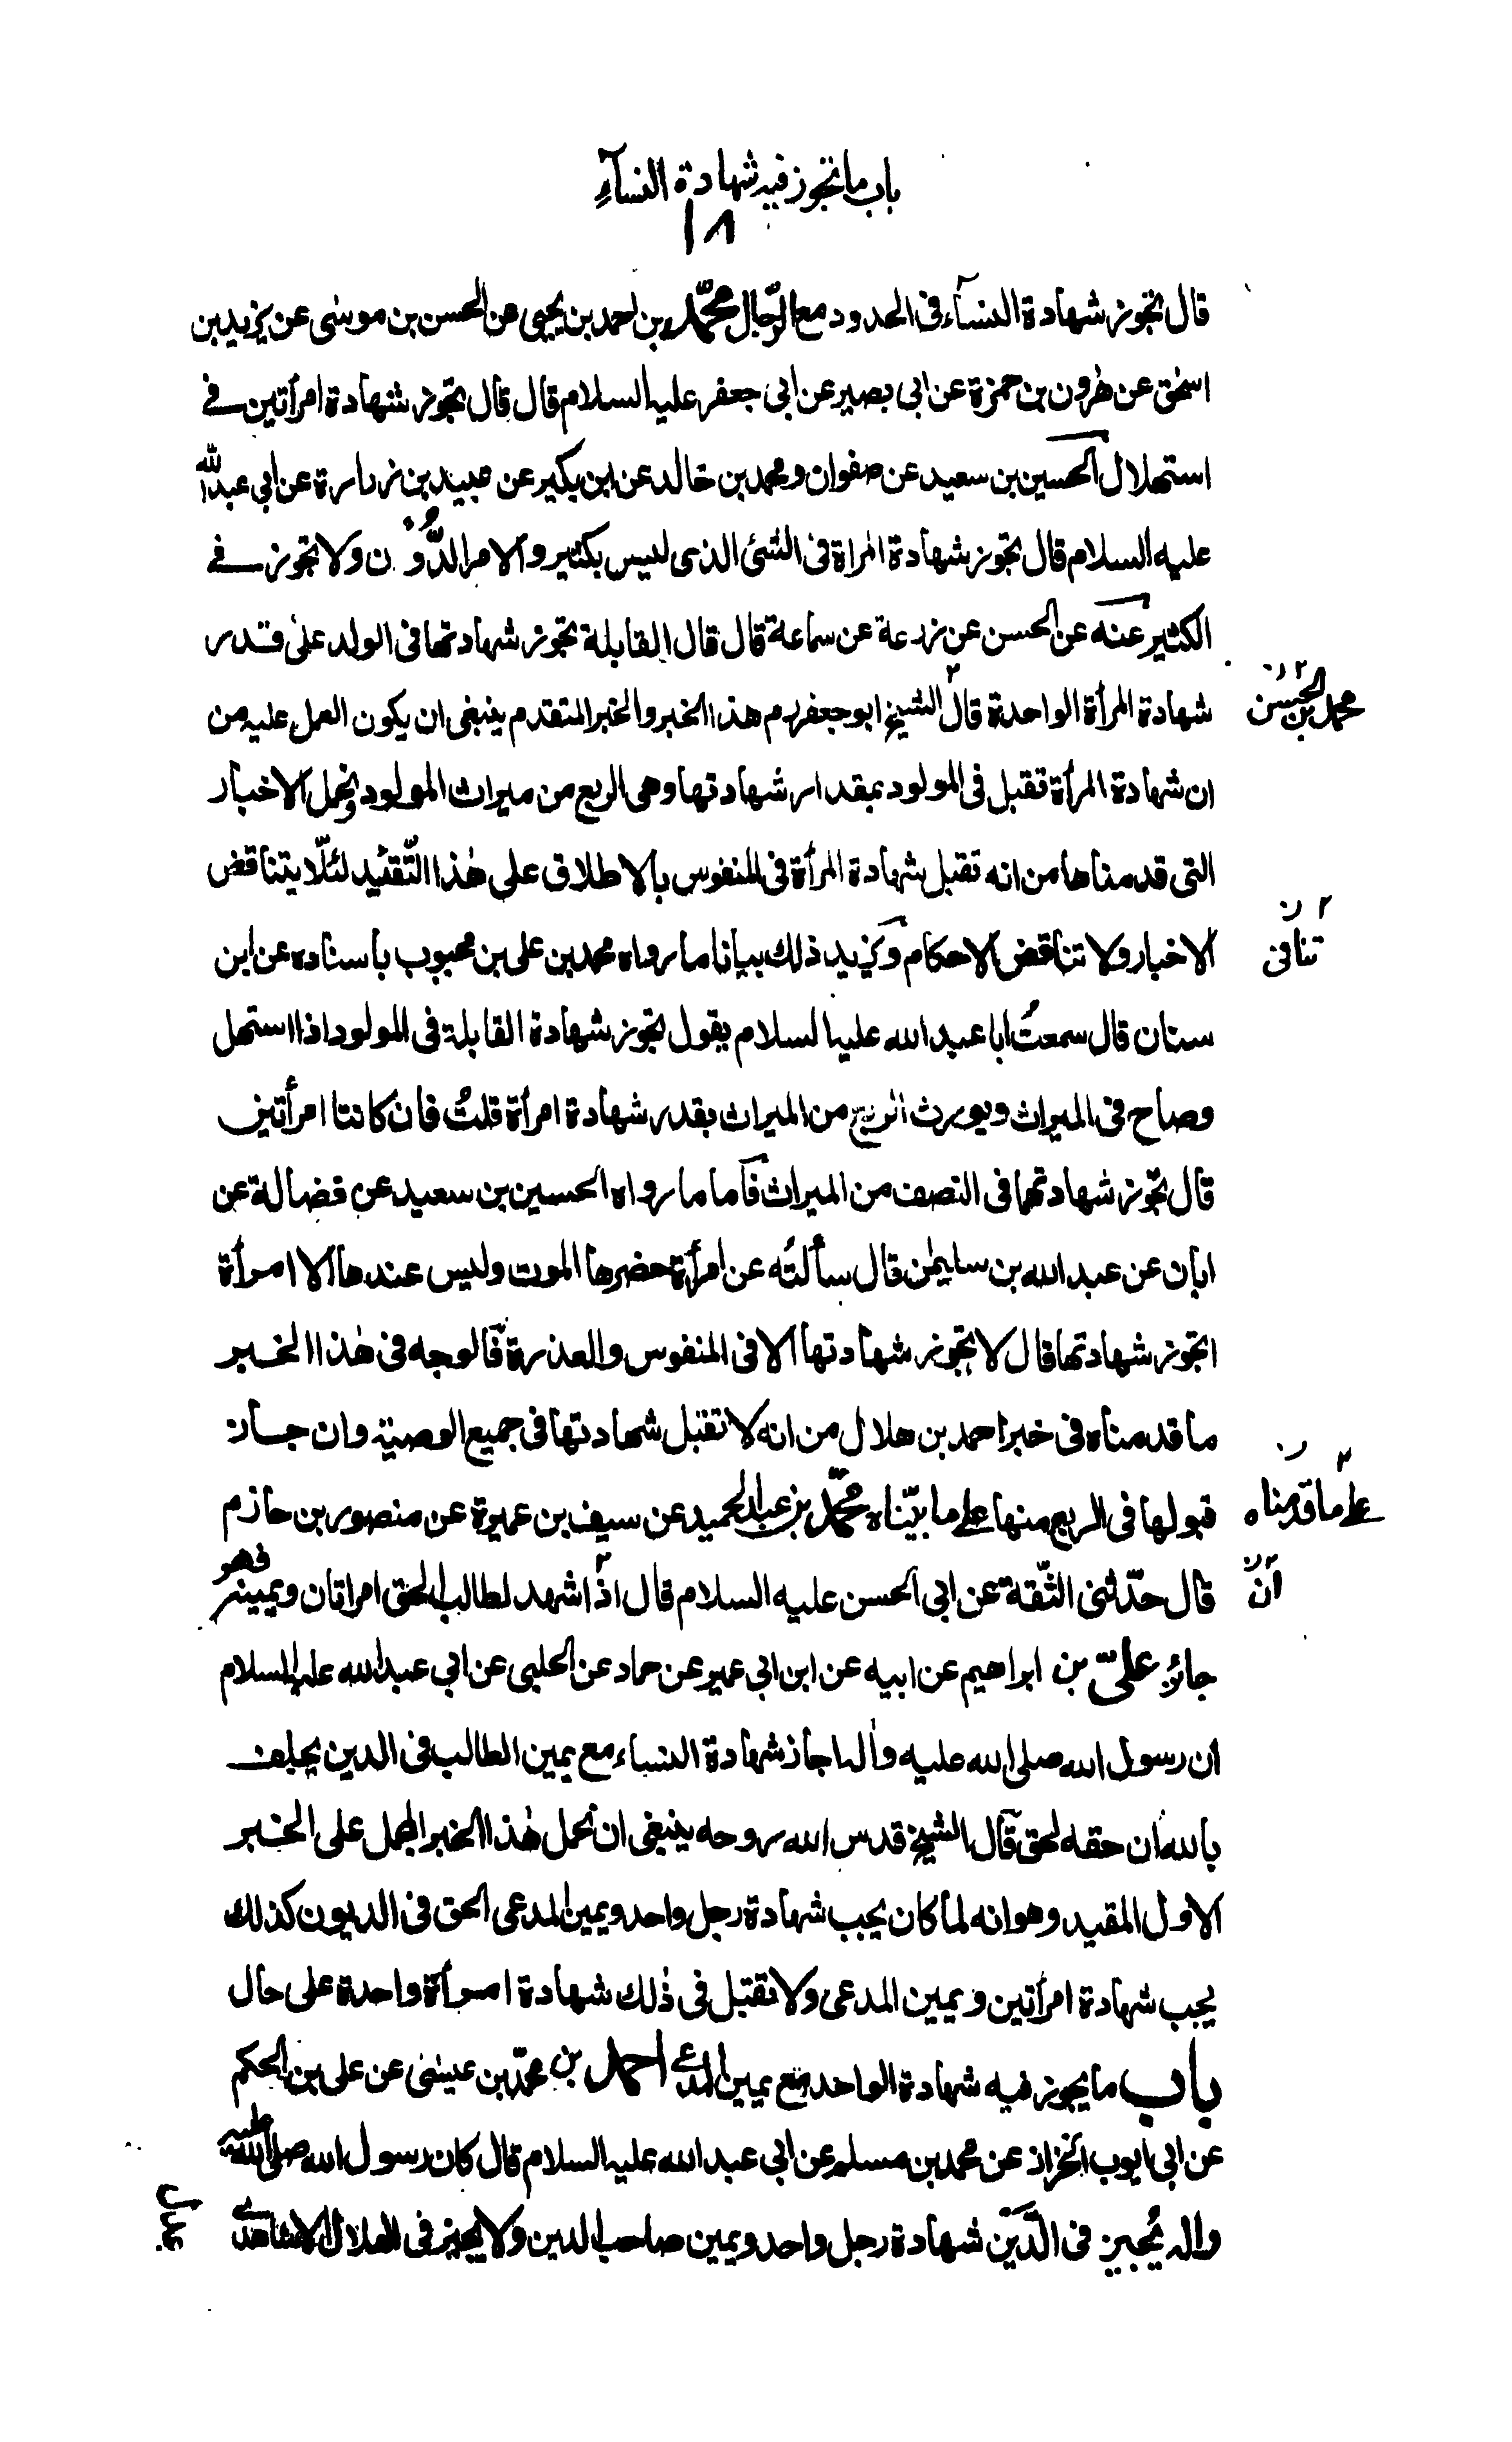 باب ما تجوز فيه شهادة النسآء
١٨
قال تجوز شهادة النسآء فى الحدود مع الرّجال محمّد بن احمد بن يحيى عن الحسن بن موسٰى عن يزيد بن
اسحٰق عن هٰرون بن حمزة عن ابى بصير عن ابى جعفر عليه السلام قال قال تجوز شهادة امرأتين فے
استهلال الحسين بن سعيد عن صفوان ومحمد بن خالد عن ابن بكير عن عبيد بن زرارة عن ابى عبدالله
عليه السلام قال تجوز شهادة المراة فى الشئ الذى ليس بكثير والامر الدُّون ولا تجوز فے
الكثير عنه عن الحسن عن زرعة عن سماعة قال قال القابلة تجوز شهادتها فى الولد علىٰ قدر
شهادة المرأة الواحدة قال الشيخ ابو جعفر هذا الخبر والخبر المتقدم ينبغى ان يكون العمل عليه من
محمد بن الحسن
ان شهادة المرأة تقبل فى المولود بمقدار شهادتها وهى الربع من ميراث المولود ونحمل الاخبار
التى قدمناها من انه تقبل شهادة المرأة فى المنفوس بالاطلاق على هٰذا التّقئيد لئلّا يتناقض
الاخبار ولا تناقض الاحكام ويزيد ذلك بيانا ما رواه محمد بن على بن محبوب باسناده عن ابن
تنافى
سنان قال سمعتُ ابا عبد الله عليه السلام يقول تجوز شهادة القابلة فى المولود اذا استهل
وصاح فى الميراث ويورث الربع من الميراث بقدر شهادة امرأة قلتُ فان كانتا امرأتين
قال تجوز شهادتهما فى النصف من الميراث فآما ما رواه الحسين بن سعيد عن فضالة عن
ابان عن عبد الله بن سليمٰن قال سألتُه عن امرأة حضرها الموت وليس عندها الا امرأة
اتجوز شهادتها قال لا تجوز شهادتها الا فى المنفوس والعذرة فالوجه فى هٰذا الخبر
ما قدمناه فى خبر احمد بن هلال من انه لا تقبل شهادتها فى جميع الوصيّة وان جاز
قبولها فى الربع منها على ما بيّناه محمّد بن عبد الحميد عن سيف بن عميرة عن منصور بن حازم
على ما قدمناه
قال حدّثنى الثّقة عن ابى الحسن عليه السلام قال اذا شهد لطالب الحق امراتان ويمينه فهو
ان
جائز علىّ بن ابراهيم عن ابيه عن ابن ابى عمير عن حماد عن الحلبى عن ابى عبدالله عليه السلام
ان رسول الله صلى الله عليه واٰله اجاز شهادة النساء مع يمين الطالب فى الدين يحلف
بالله ان حقه لحق قال الشيخ قدس الله روحه ينبغى ان نحمل هٰذا الخبر المجمل على الخبر
الاول المقيد وهو انه لما كان يجب شهادة رجل واحد ويمين المدعى الحق فى الديون كذلك
يجب شهادة امرأتين ويمين المدعى ولا تقبل فى ذٰلك شهادة امرأة واحدة على حال
باب ما يجوز فيه شهادة الواحد مع يمين المدعے احمد بن محمّد بن عيسٰى عن على بن الحكم
عن ابى ايوب الخزاز عن محمد بن مسلم عن ابى عبد الله عليه السلام قال كان رسول الله صلى الله عليه
واله يُجيز فى الدَّيْن شهادة رجل واحد ويمين صاحب الدين ولا يجيز فى الهلال الا شاهدى